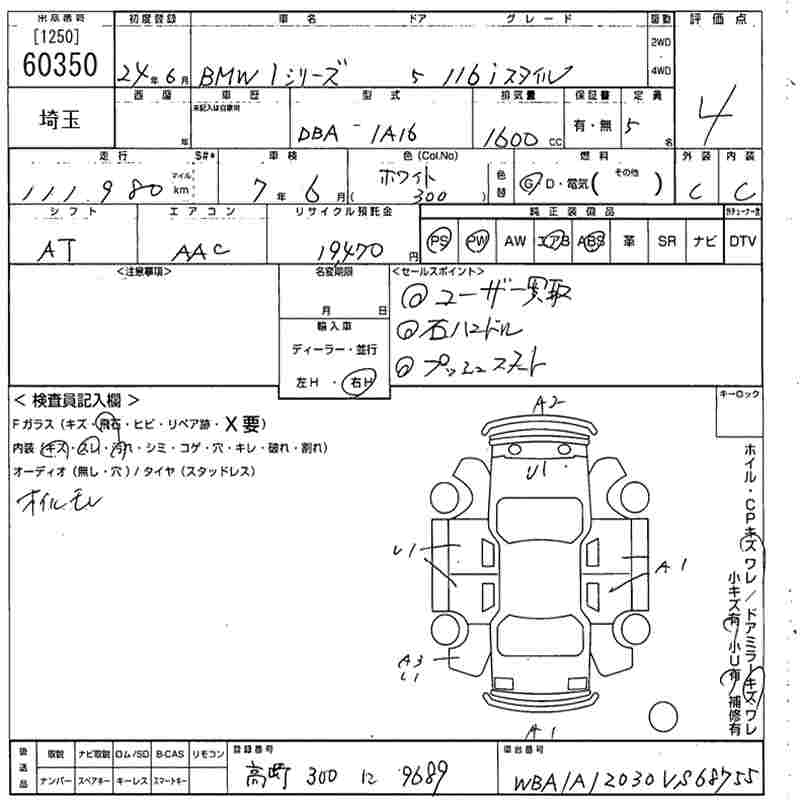 出品番号 初度登録 車名 ドア グレード 駆動 評価点
[1250]
60350
24年6月 BMW 1シリーズ 5 116iスタイル 2WD ・ 4WD 4
埼玉 車歴 型式 排気量 保証書 定員
未記入は自家用
年 DBA-1A16 1600cc 有・無 5名
走行 S#* 車検 色(Col.No) 燃料 外装 内装
111,980 マイル km 7年6月 (ホワイト 300) 色替 G・D・電気( その他 ) C C
シフト エアコン リサイクル預託金 純正装備品
AT AAC 19,470円 PS PW AW エアB ABS 革 SR ナビ DTV
<注意事項> 名変期限 <セールスポイント>
月 日
輸入車
ディーラー・並行
左H・右H
◎ユーザー買取
◎右ハンドル
◎プッシュスタート
キーロック
<検査員記入欄>
Fガラス(キズ・飛石・ヒビ・リペア跡・X要)
内装(キズ・スレ・汚れ・シミ・コゲ・穴・キレ・破れ・割れ)
オーディオ(無し・穴)/タイヤ(スタッドレス)
オイルモレ
A2
U1
U1
A1
A3
A1
ホイル・CPキズワレ/ドアミラーキズワレ
小キズ有 小U有 補修有
後送品 取説 ナビ取説 ロム/SD B-CAS リモコン 登録番号 車台番号
ナンバー スペアキー キーレス スマートキー 300 に 9689 WBA1A12030VS68755